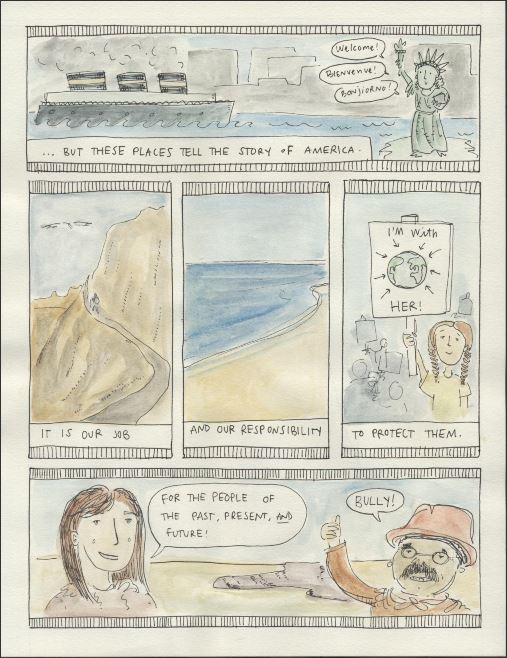 Welcome!
BIENVENUE!
BONJIORNO!
... BUT THESE PLACES TELL THE STORY OF AMERICA.
IT IS OUR JOB
AND OUR RESPONSIBILITY
I'M With
HER!
TO PROTECT THEM.
FOR THE PEOPLE OF
THE PAST, PRESENT, AND
FUTURE!
BULLY!